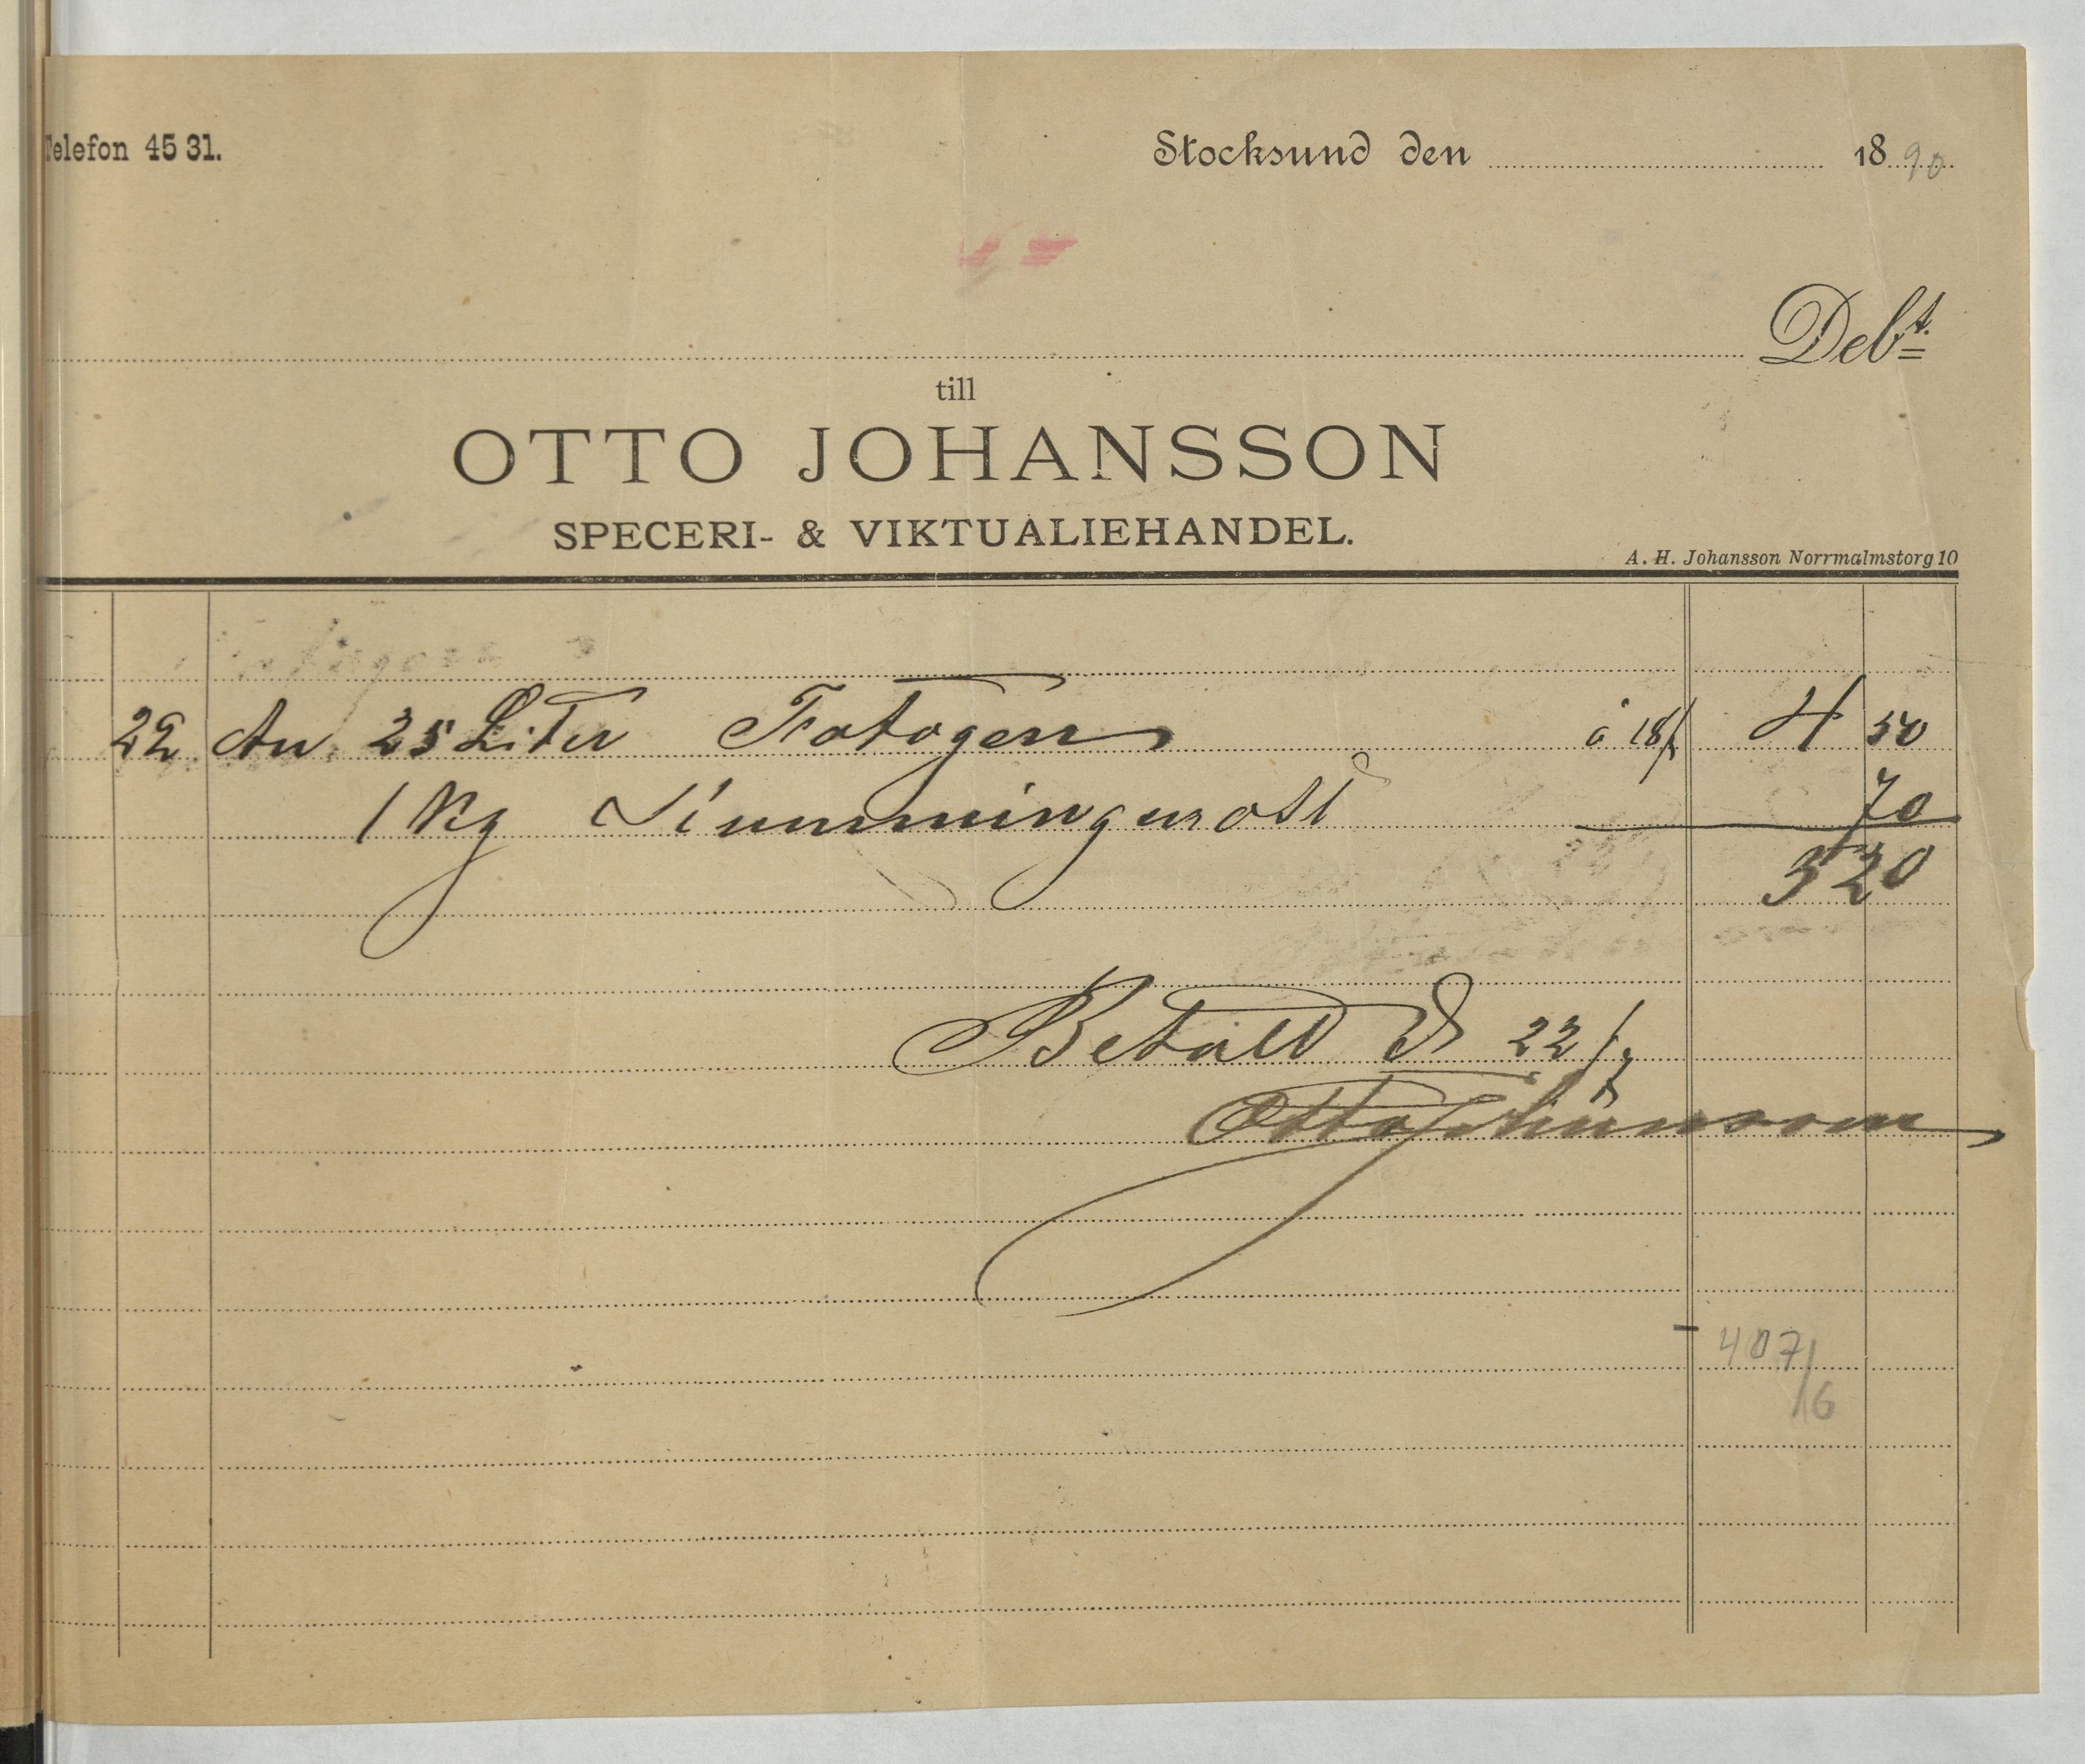 Telefon 45 31.
Stocksund den 1890
Debt.
till
OTTO JOHANSSON
SPECERI- & VIKTUALIEHANDEL.
A. H. Johansson Norrmalmstorg 10
22 An 25 Liter Fotogen à 18/ 4 50
1 Kg 70
5 20
Betald d 22/
Otto Johansson
407/6